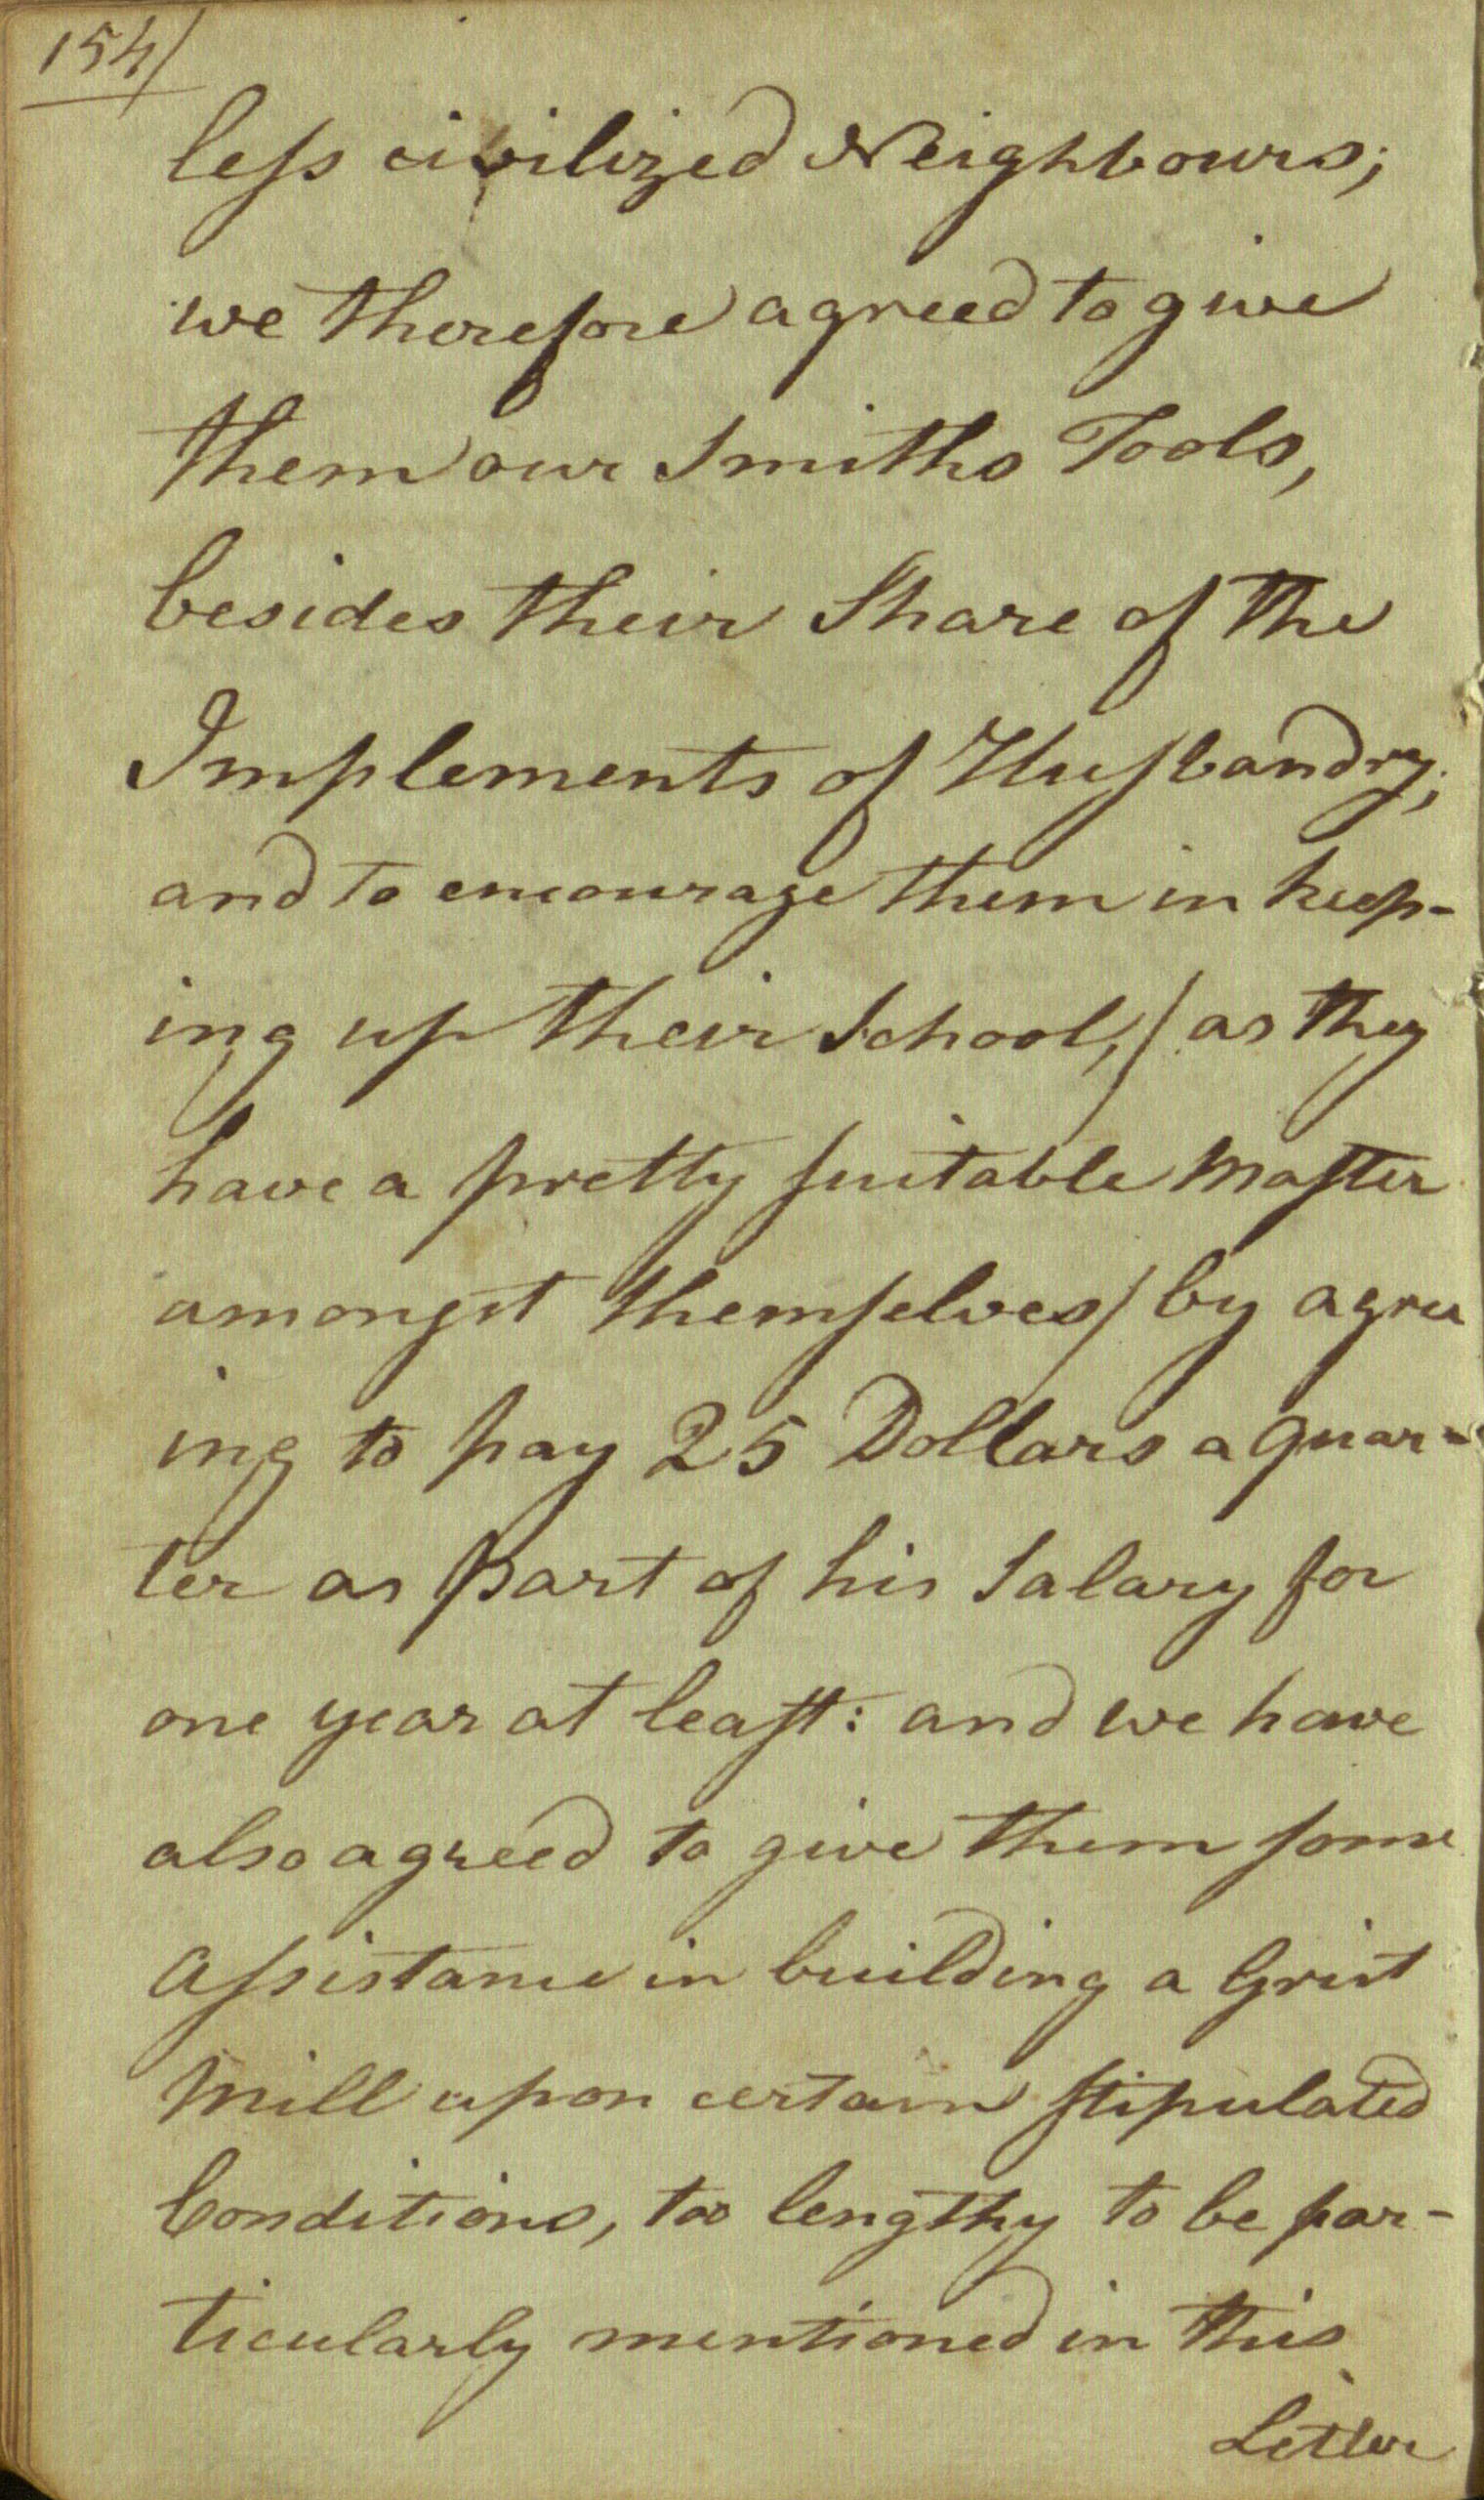 154/
less civilized Neighbours;
we therefore agreed to give
them our Smiths Tools,
besides their Share of the
Implements of Husbandry;
and to encourage them in keep-
ing up their School, / as they
have a pretty suitable Master
amongst themselves / by agree
ing to pay 25 Dollars a quar-
ter as part of his Salary for
one year at least: and we have
also agreed to give them some
Assistance in building a Grist
Mill upon certain stipulated
Conditions, too lengthy to be par-
ticularly mentioned in this
Letter